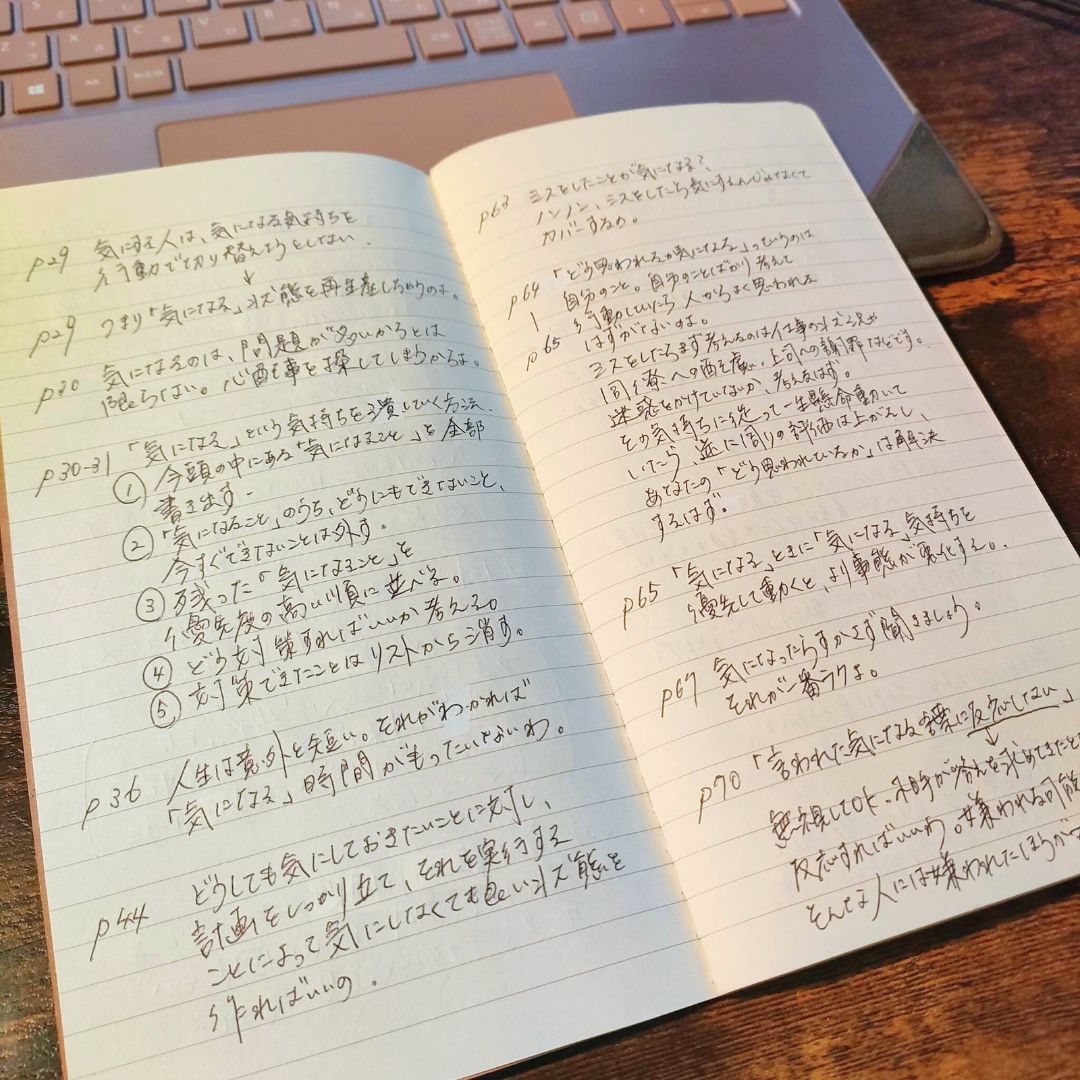 p29 気にする人は、気になる気持ちを
行動で切り替えようとしない.
↓
p29 つまり「気になる」状態を再生産しちゃうのよ。
p30 気になるのは、問題が多いからとは
限らない。心配事を探してしまうからよ。
p30-31 「気になる」という気持ちを潰していく方法.
① 今頭の中にある「気になること」を全部
書き出す.
② 「気になること」のうち、どうにもできないこと、
今すぐできないことは外す.
③ 残った「気になること」を
優先度の高い順に並べる。
④ どう対策すればいいか考える。
⑤ 対策できたことはリストから消す。
p36 人生は意外と短い。それがわかれば
「気になる」時間がもったいないわ。
p44 どうしても気にしておきたいことに対し、
計画をしっかり立て、それを実行する
ことによって気にしなくても良い状態を
作ればいいの.
p63 ミスをしたことが気になる?
ノンノン、ミスをしたら気にすんじゃなくて
カバーするの。
p64 「どう思われるか気になる」っていうのは
| 自分のこと。自分のことばかり考えて
行動していたら 人からよく思われる
p65 はずがないのよ。
ミスをしたらまず考えるのは仕事の状況や
同僚への配慮、上司への謝罪などです。
迷惑をかけていないか、考えるはず。
その気持ちに従って一生懸命動いて
いたら、逆に周りの評価は上がるし、
あなたの「どう思われているか」は解決
するはず.
p65 「気になる」ときに「気になる」気持ちを
優先して動くと、より事態が悪化する。
p67 気になったらすかさず聞きましょう。
それが一番ラクよ。
p70 「言われた気になる言葉に反応しない」
↓
無視してOK. 相手が答えを求めてきたと
反応すればいいわ。嫌われる可能
そんな人には嫌われたほうが